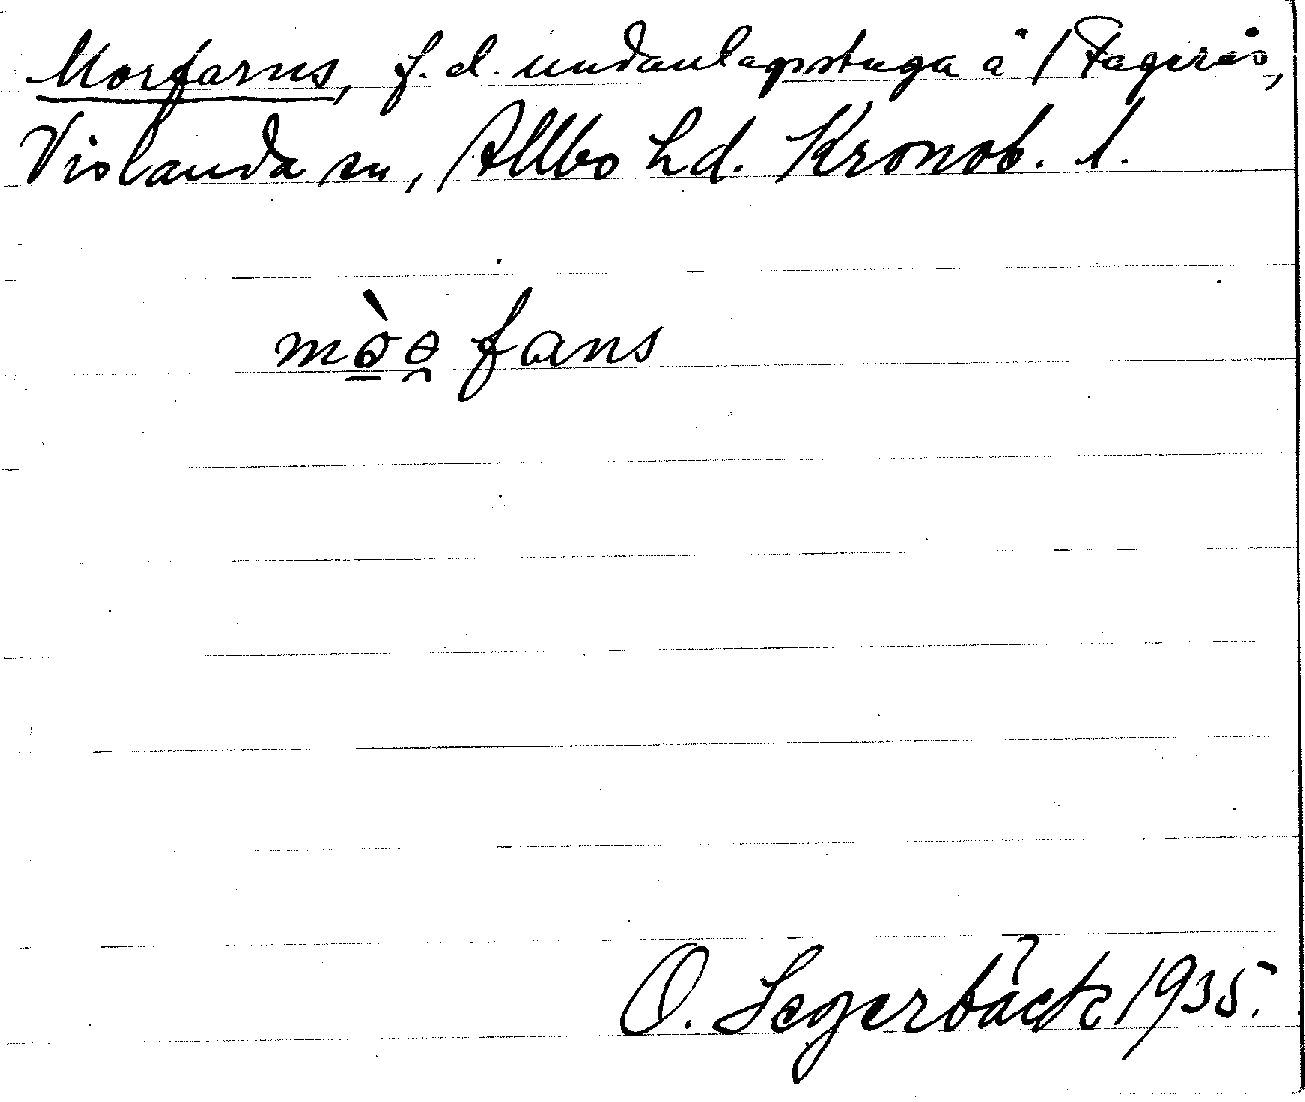 Morfarns, f. d. undantagsstuga å 1 Fagerås,
Vislanda sn, Allbo hd. Kronob. l.
mòə fans
O. Segerbäck 1935.